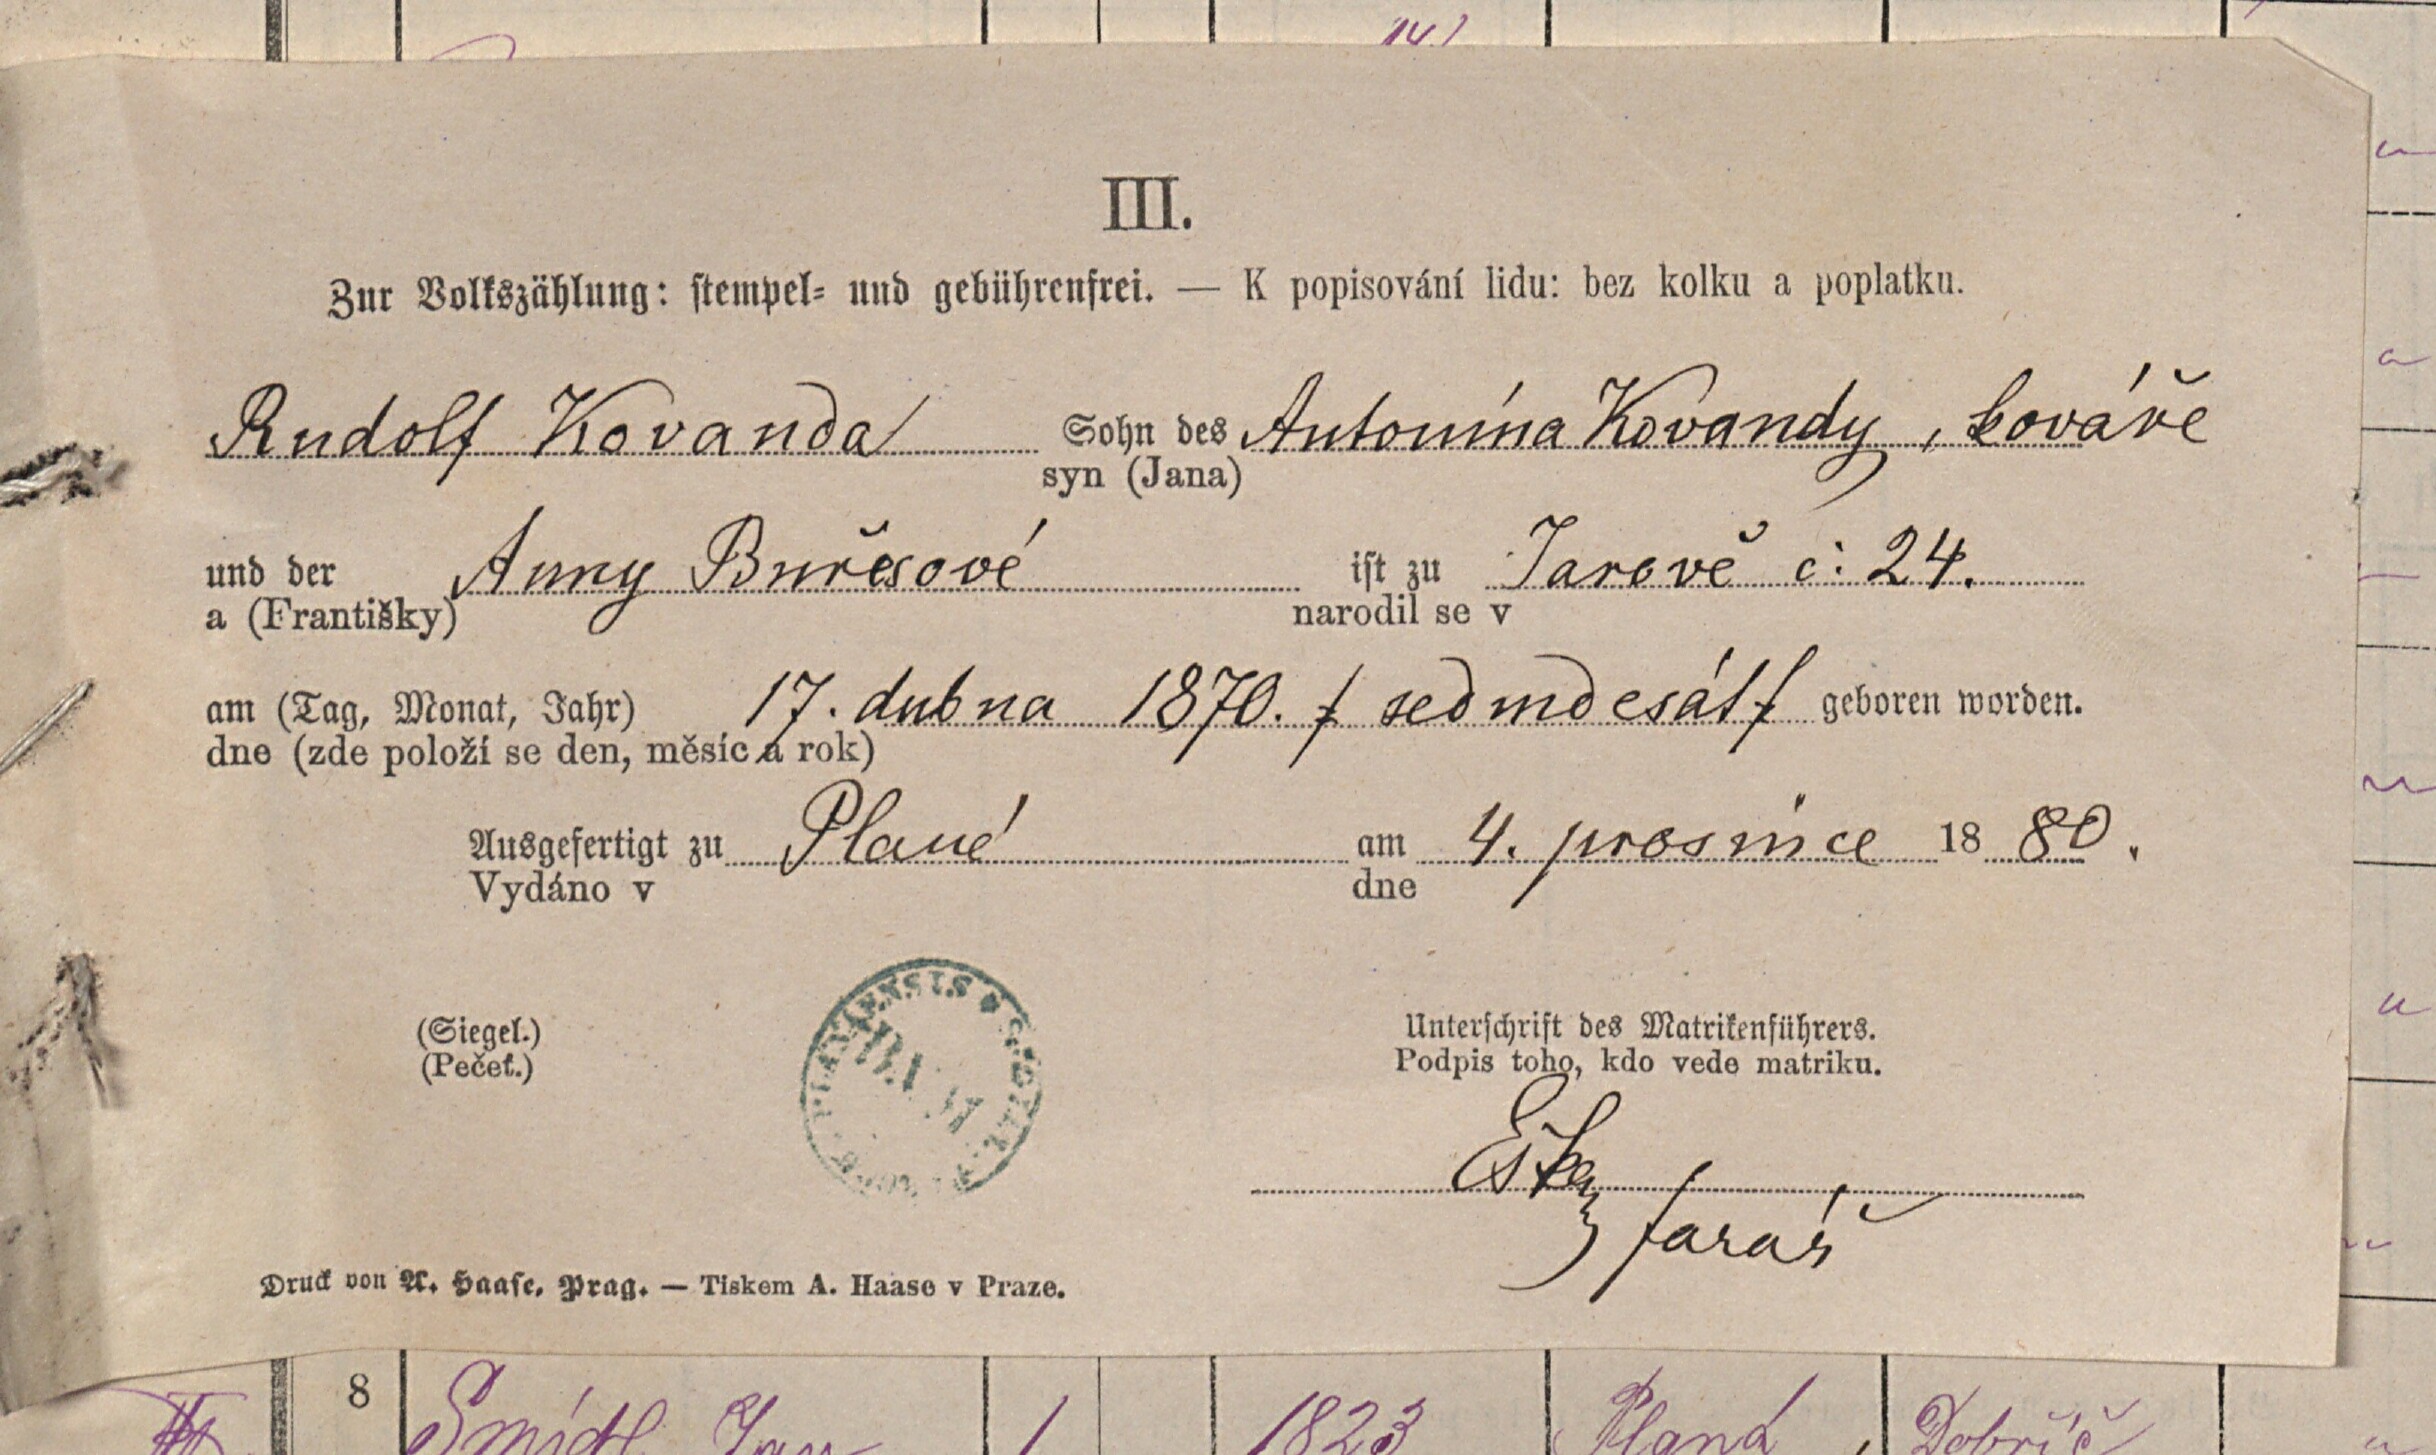 III.
Zur Volkszählung: stempel- und gebührenfrei. — K popisování lidu: bez kolku a poplatku.
Rudolf Kovanda Sohn des Antonína Kovandy, kováře
syn (Jana)
und der Anny Burešové ist zu Jarově č: 24.
a (Františky) narodil se v
am (Tag, Monat, Jahr) 17. dubna 1870. / sedmdesát / geboren worden.
dne (zde položí se den, měsíc a rok)
Ausgefertigt zu Plané am 4. prosince 1880.
Vydáno v dne
PLANENSIS
(Siegel.) Unterschrift des Matrikenführers.
(Pečeť.) Podpis toho, kdo vede matriku.
farář
Druck von A. Haase, Prag. — Tiskem A. Haase v Praze.
8 Šmídl Jan 1 1823 Planá Dobříč